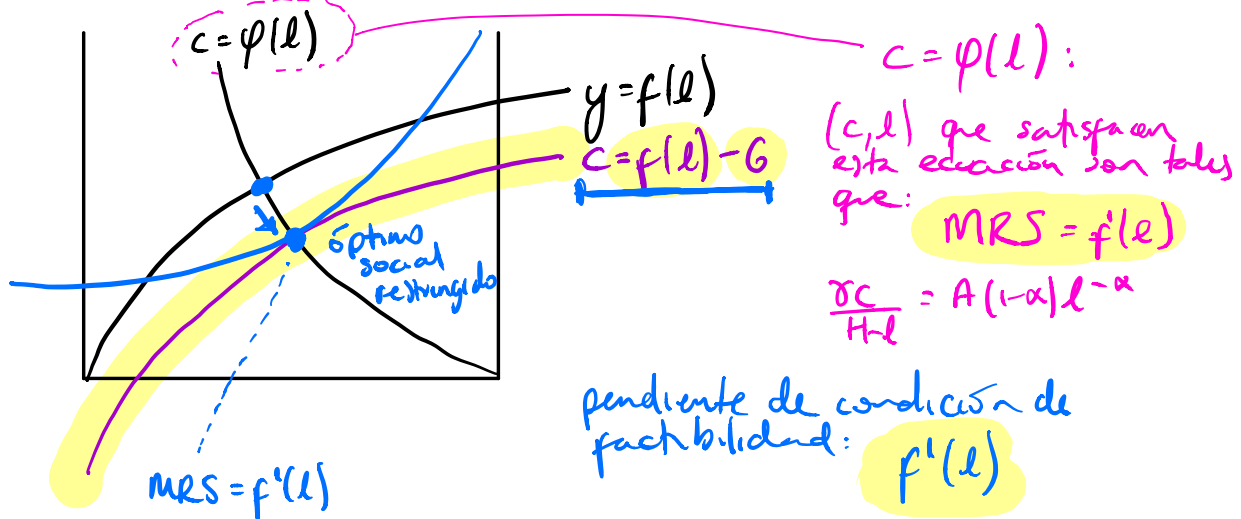 c = φ(l)
y = f(l)
c = f(l) - G
óptimo
social
restringido
MRS = f'(l)
c = φ(l) :
(c, l) que satisfacen
esta ecuación son tales
que:
MRS = f'(l)
γc/(H-l) = A(1-α) l^-α
pendiente de condición de
factibilidad:
f'(l)